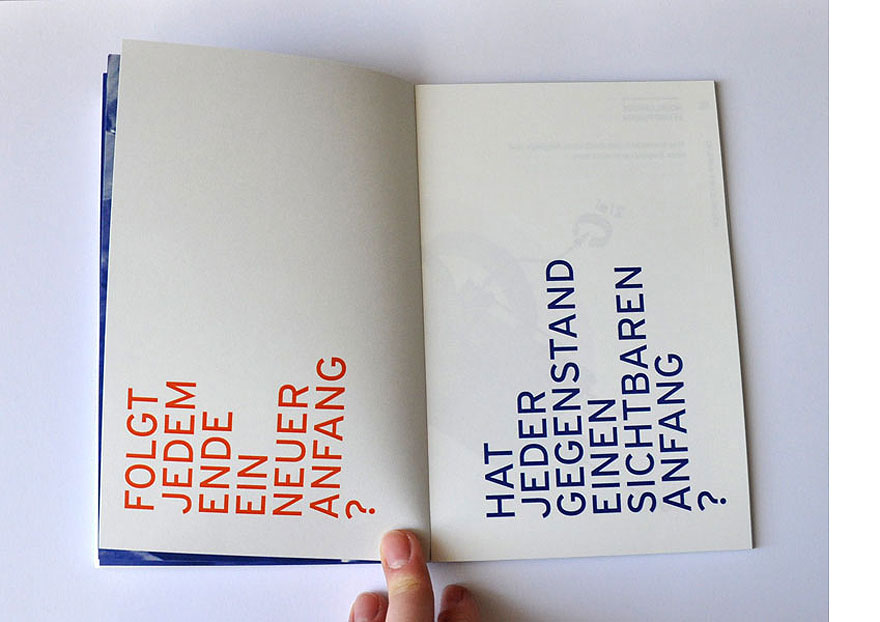 FOLGT
JEDEM
ENDE
EIN
NEUER
ANFANG
?
HAT
JEDER
GEGENSTAND
EINEN
SICHTBAREN
ANFANG
?